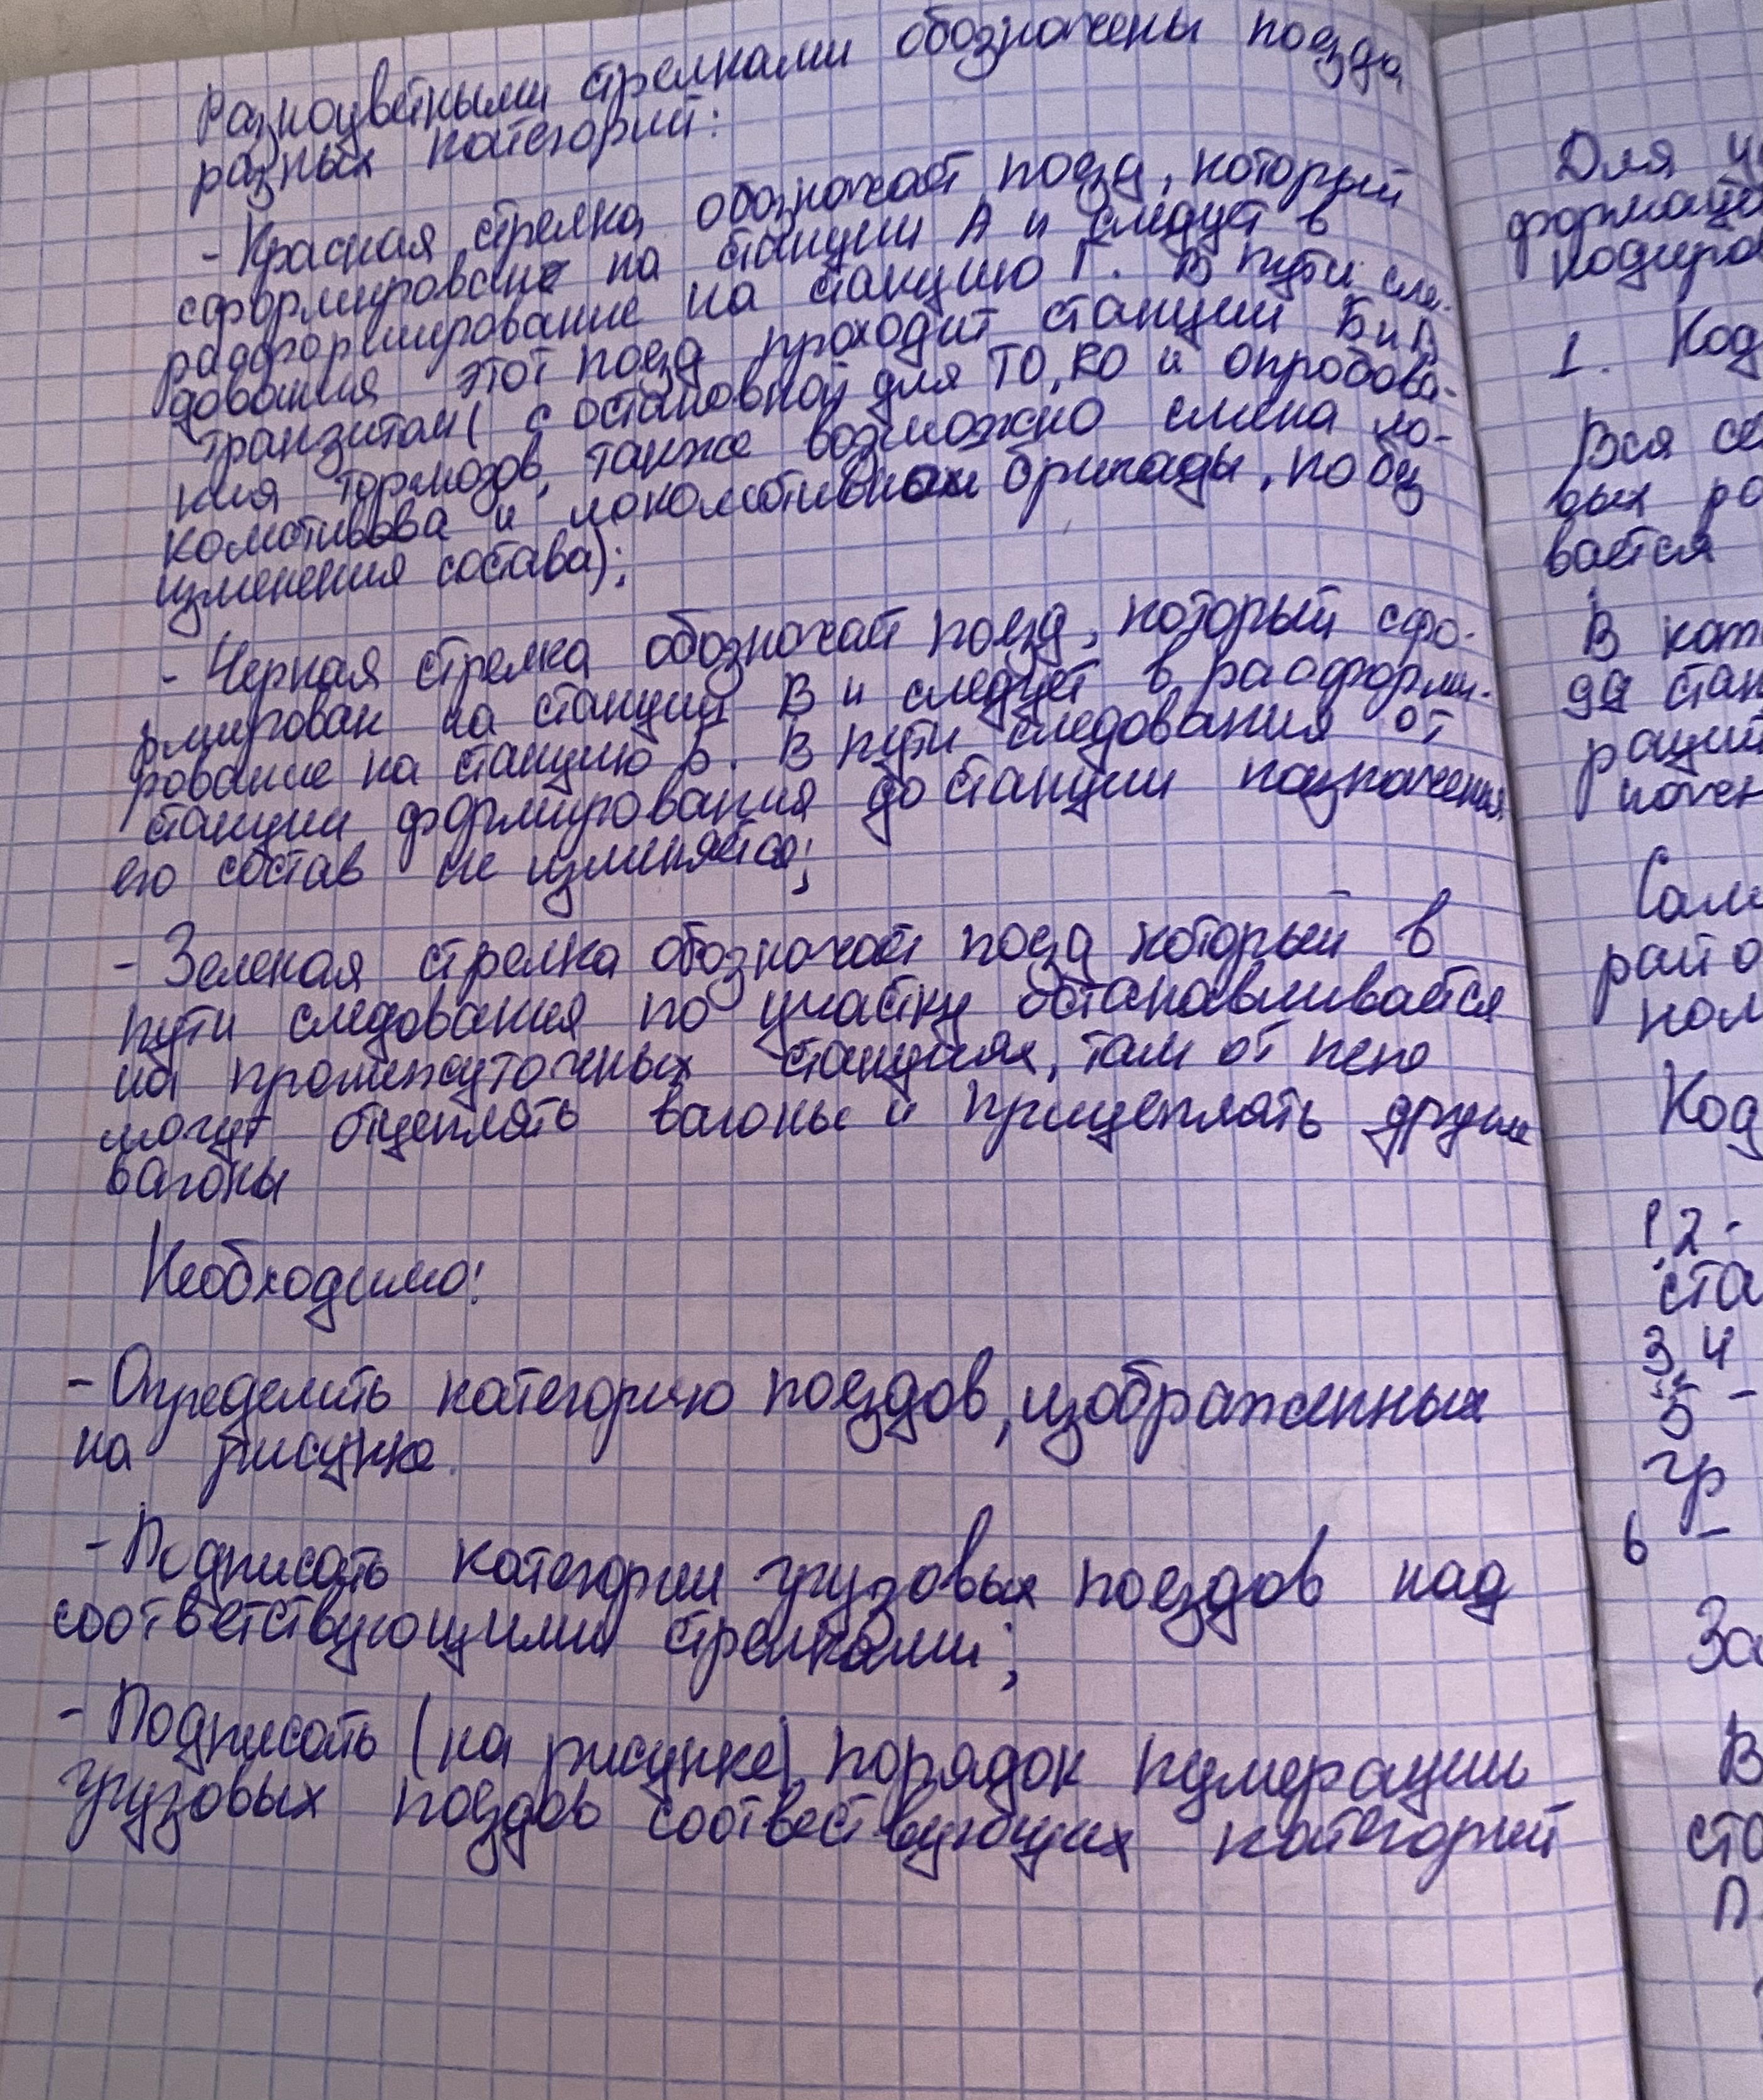 Разноцветными стрелками обозначены поезда
разных категорий:
- Красная стрелка обозначает поезд, который
сформирован на станции А и следует в
расформирование на станцию Г. В пути сле-
дования этот поезд проходит станции Б и В
транзитом ( с остановкой для ТО, КО и опробова-
ния тормозов, также возможно смена ло-
комотивова и локомотивной бригады, но без
изменения состава);
- Черная стрелка обозначает поезд, который сфо-
рмирован на станции В и следует в расформи-
рование на станцию Б. В пути следования от
станции формирования до станции назначения
его состав не изменяется;
- Зеленая стрелка обозначает поезд который в
пути следования по участку останавливается
на промежуточных станциях, там от него
могут отцеплять вагоны и прицеплять другие
вагоны
Необходимо:
- Определить категорию поездов, изображенных
на рисунке.
- Подписать категории грузовых поездов над
соответствующими стрелками;
- Подписать (на рисунке) порядок нумерации
грузовых поездов соотвествующих категорий
Для
1. Код
Вся се
вых ра
вается
В кат
да стан
раций
начен
Сам
райо
ном
Код
1,2 -
ста
3,4
5 -
гр
6 -
За
В
ста
П